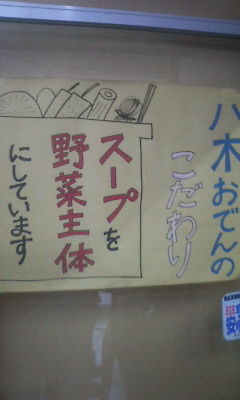 八木おでんの
こだわり
スープを
野菜主体
にしています